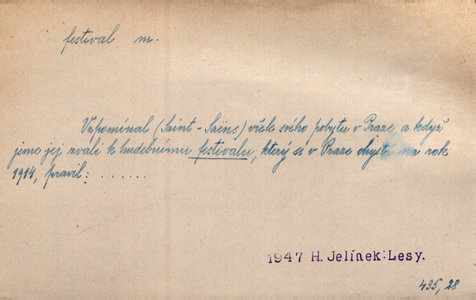 festival m.
Vzpomínal (Saint-Saëns) vřele svého pobytu v Praze, a když
jsme jej zvali k hudebnímu festivalu, který se v Praze chystá na rok
1914, pravil: . . . . . .
1947 H. Jelínek: Lesy.
435, 28